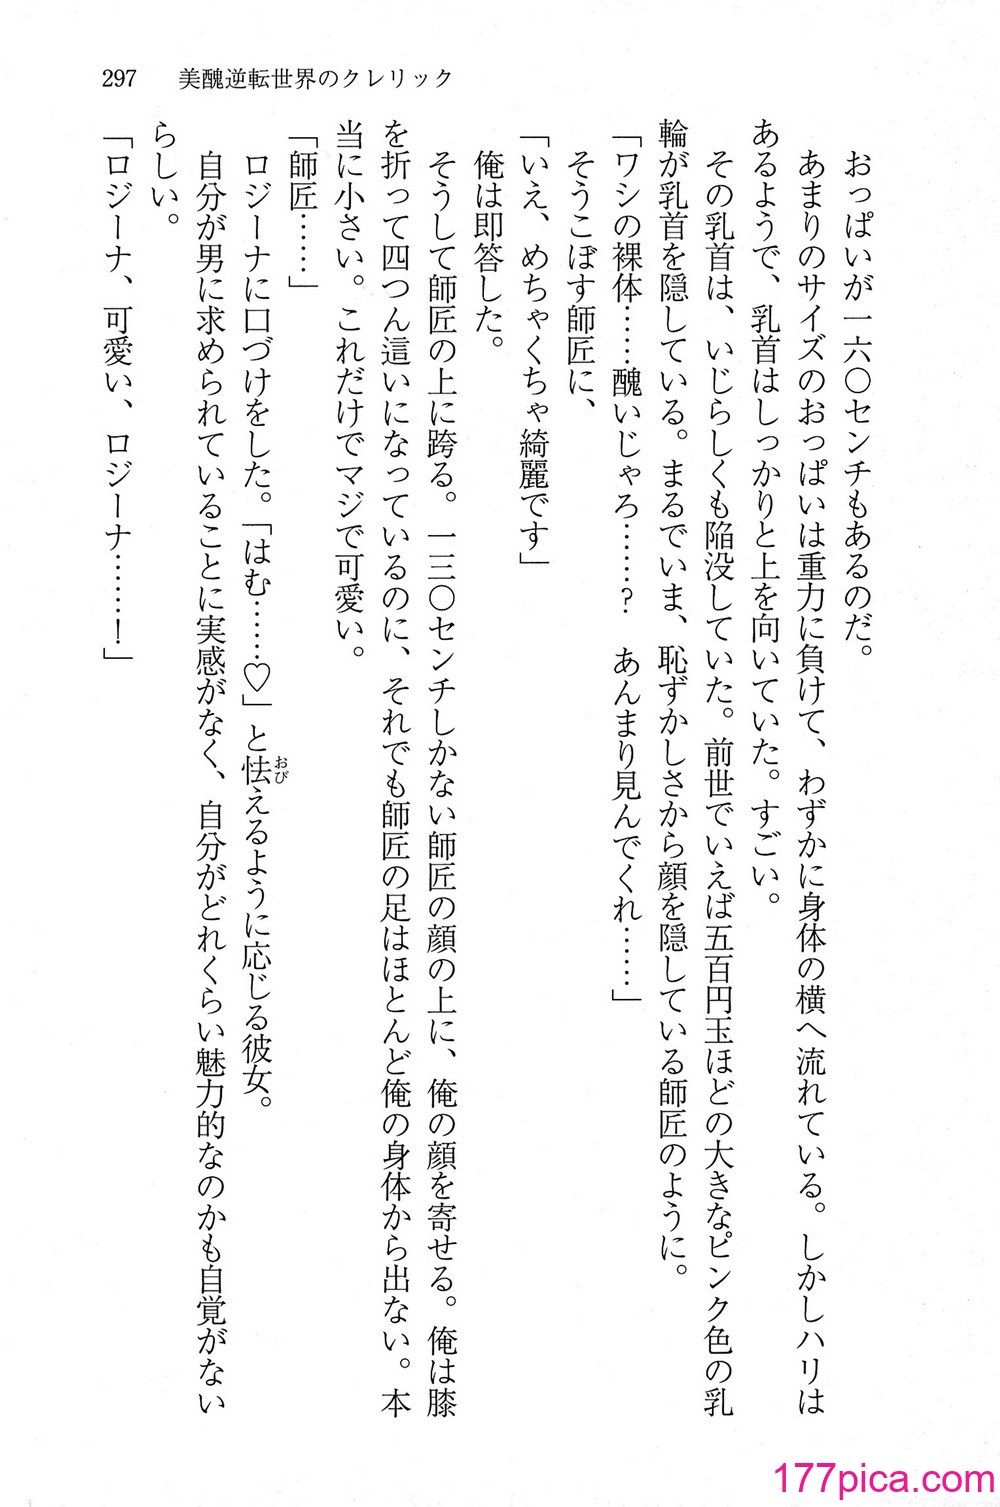 297 美醜逆転世界のクレリック
おっぱいが一六〇センチもあるのだ。
あまりのサイズのおっぱいは重力に負けて、わずかに身体の横へ流れている。しかしハリは
あるようで、乳首はしっかりと上を向いていた。すごい。
その乳首は、いじらしくも陥没していた。前世でいえば五百円玉ほどの大きなピンク色の乳
輪が乳首を隠している。まるでいま、恥ずかしさから顔を隠している師匠のように。
「ワシの裸体……醜いじゃろ……? あんまり見んでくれ……」
そうこぼす師匠に、
「いえ、めちゃくちゃ綺麗です」
俺は即答した。
そうして師匠の上に跨る。一三〇センチしかない師匠の顔の上に、俺の顔を寄せる。俺は膝
を折って四つん這いになっているのに、それでも師匠の足はほとんど俺の身体から出ない。本
当に小さい。これだけでマジで可愛い。
「師匠……」
ロジーナに口づけをした。「はむ……♡」と怯えるように応じる彼女。
おび
自分が男に求められていることに実感がなく、自分がどれくらい魅力的なのかも自覚がない
らしい。
「ロジーナ、可愛い、ロジーナ……!」
177pica.com